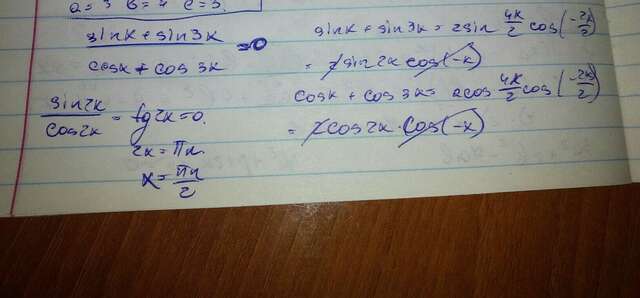 a = 3 b = 4 c = 5.
sinx + sin3x
cosx + cos3x
=0
sin2x
cos2x
= tg2x=0.
2x = πn
x = πn
2
sinx + sin3x = 2sin 4x/2 cos(-2x/2)
= 2sin2x cos(-x)
cosx + cos3x = 2cos 4x/2 cos(-2x/2)
= 2cos2x · cos(-x)